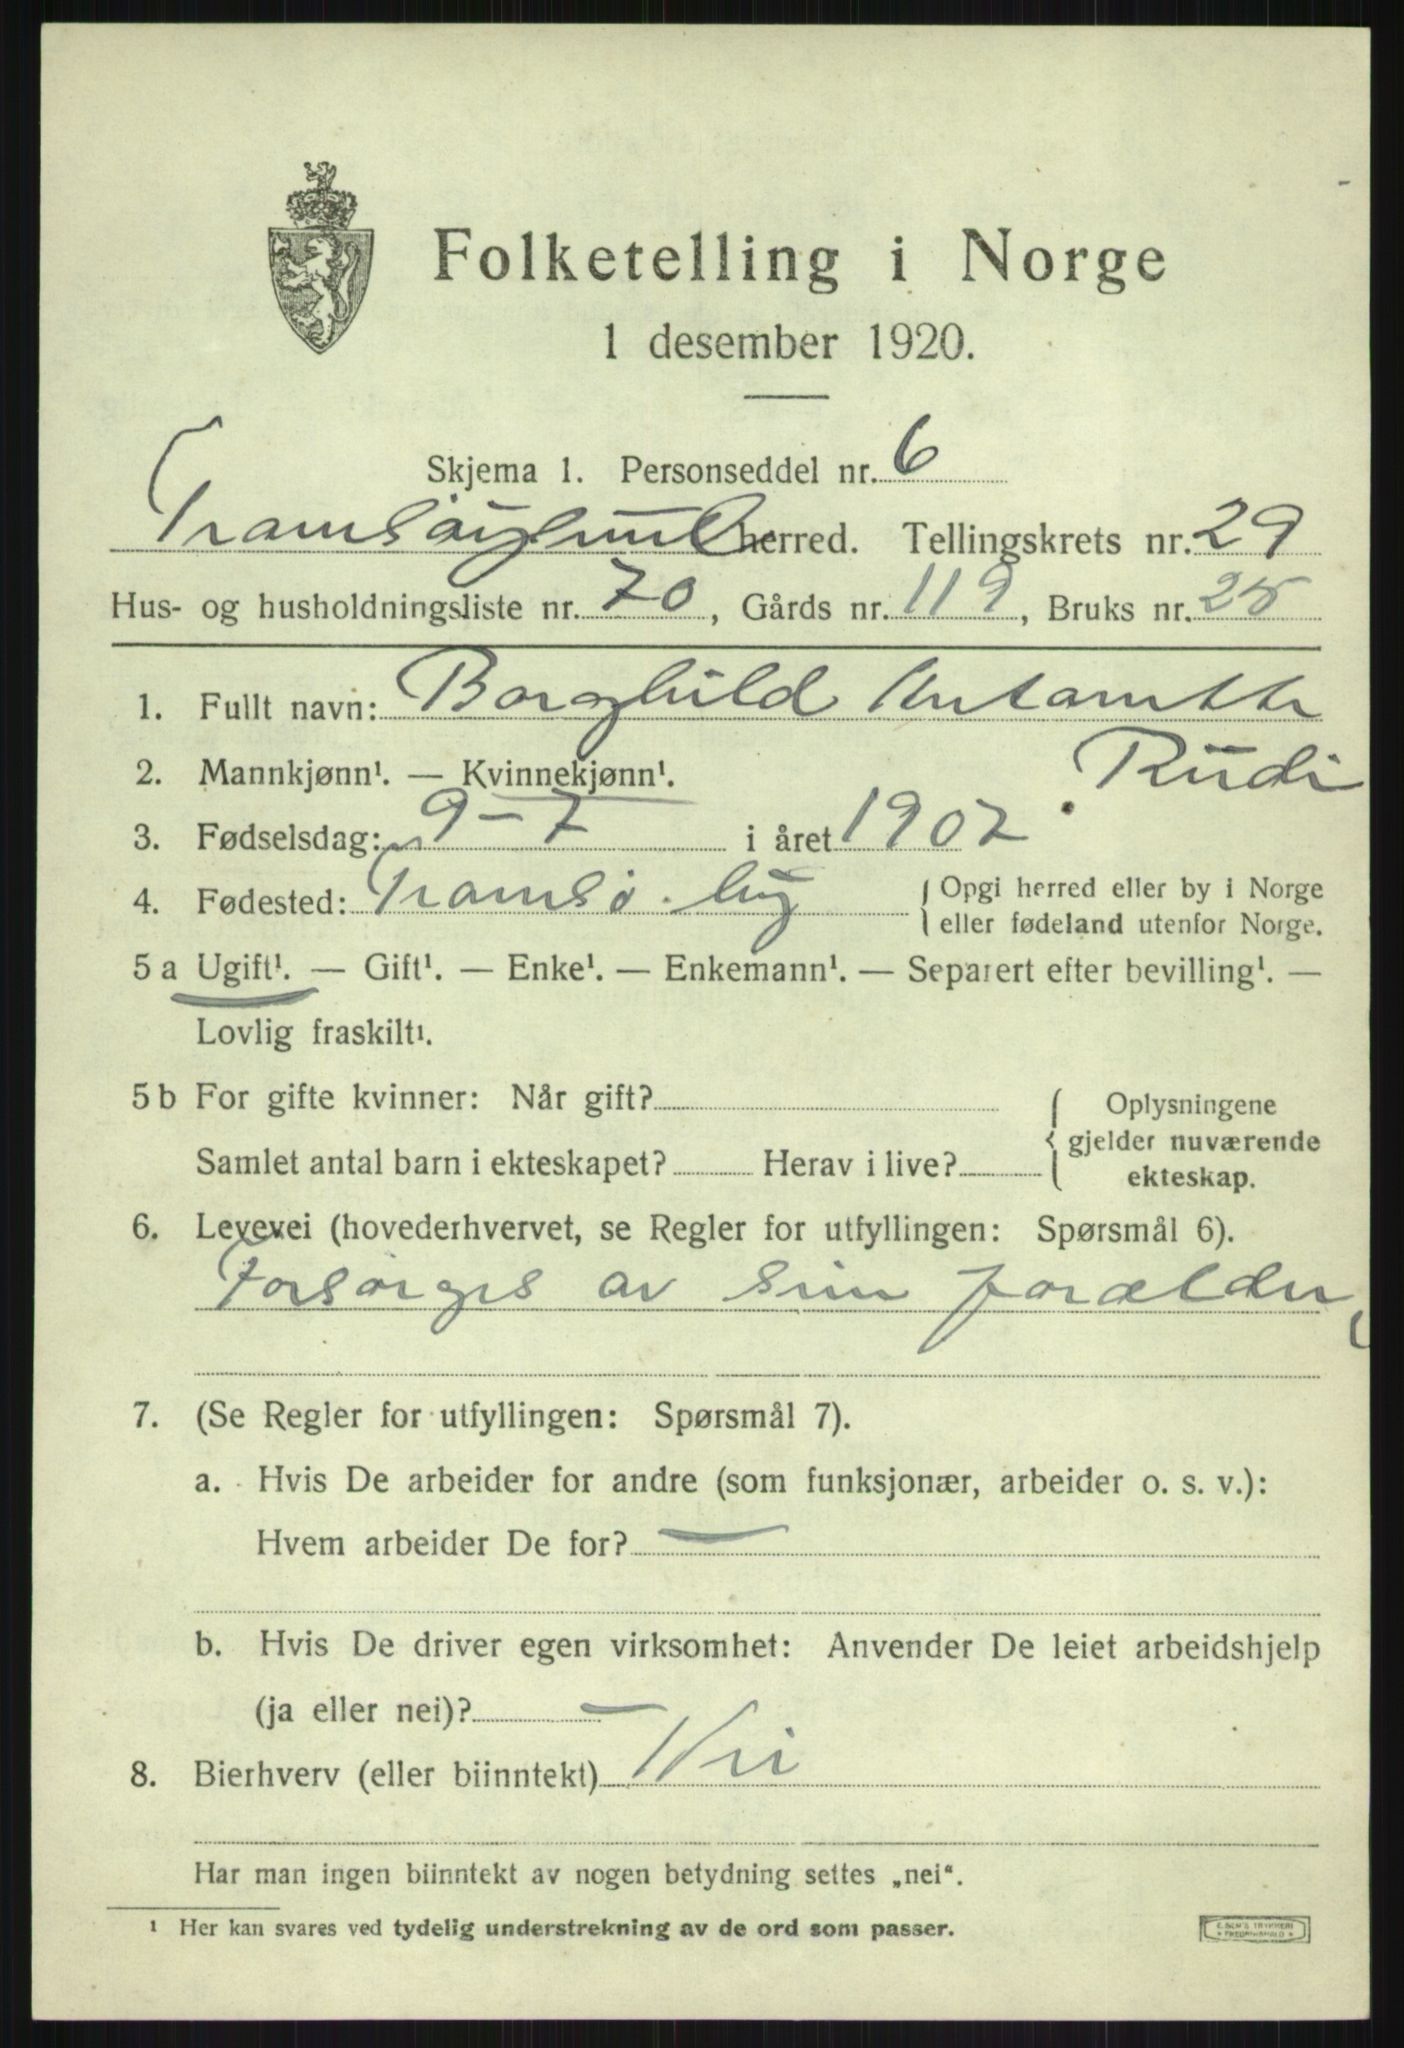 Folketelling i Norge
1 desember 1920.
Skjema 1. Personseddel nr. 6
Tromsøysund herred. Tellingskrets nr. 29
Hus- og husholdningsliste nr. 70, Gårds nr. 119, Bruks nr. 28
1. Fullt navn: Borghild Antonette
Rudi
2. Mannkjønn¹. — Kvinnekjønn¹.
3. Fødselsdag: 9-7 i året 1902
4. Fødested: Tromsø by { Opgi herred eller by i Norge
eller fødeland utenfor Norge.
5 a Ugift¹. — Gift¹. — Enke¹. — Enkemann¹. — Separert efter bevilling¹. —
Lovlig fraskilt¹.
5 b For gifte kvinner: Når gift? { Oplysningene
gjelder nuværende
Samlet antal barn i ekteskapet? Herav i live?
ekteskap.
6. Levevei (hovederhvervet, se Regler for utfyllingen: Spørsmål 6).
Forsørges av sine forældre
7. (Se Regler for utfyllingen: Spørsmål 7).
a. Hvis De arbeider for andre (som funksjonær, arbeider o. s. v.):
Hvem arbeider De for? —
b. Hvis De driver egen virksomhet: Anvender De leiet arbeidshjelp
(ja eller nei)? —
8. Bierhverv (eller biinntekt) Nei
Har man ingen biinntekt av nogen betydning settes „nei“.
¹ Her kan svares ved tydelig understrekning av de ord som passer.